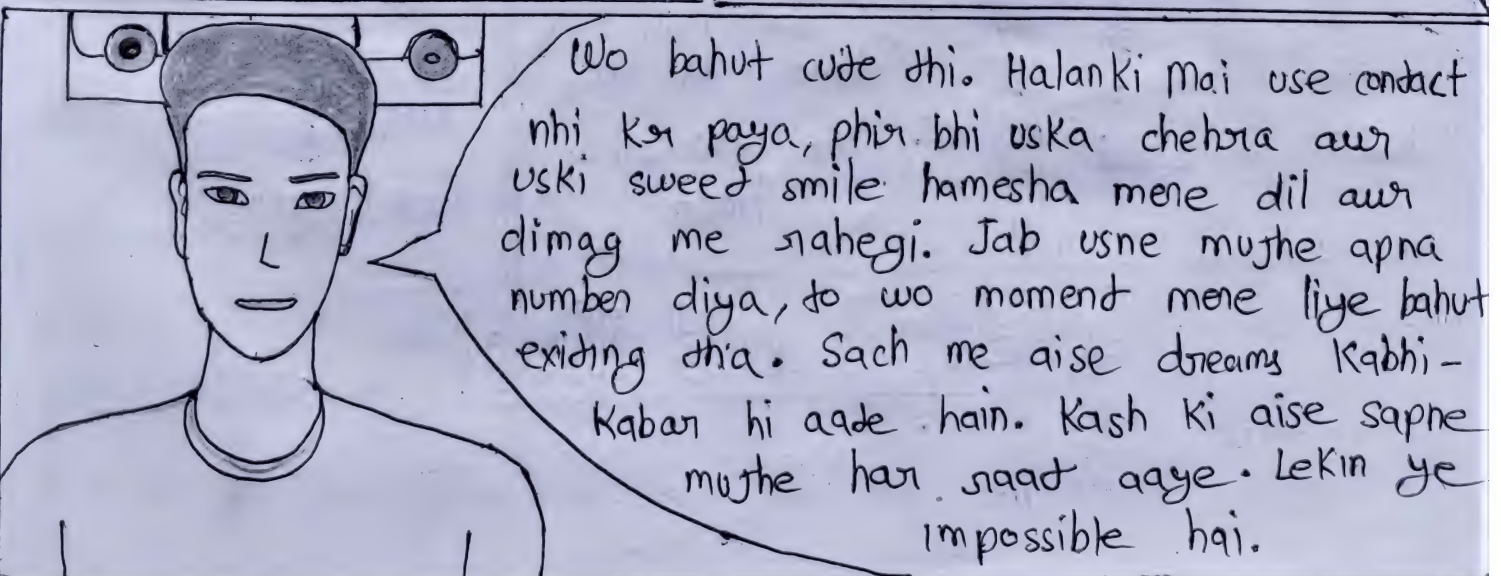 Wo bahut cute thi. Halanki Mai use contact
nhi kr paya, phir bhi uska chehra aur
uski sweet smile hamesha mere dil aur
dimag me rahegi. Jab usne mujhe apna
number diya, to wo moment mere liye bahut
exiting tha. Sach me aise dreams kabhi-
kabar hi aate hain. Kash ki aise sapne
mujhe har raat aaye. Lekin ye
impossible hai.